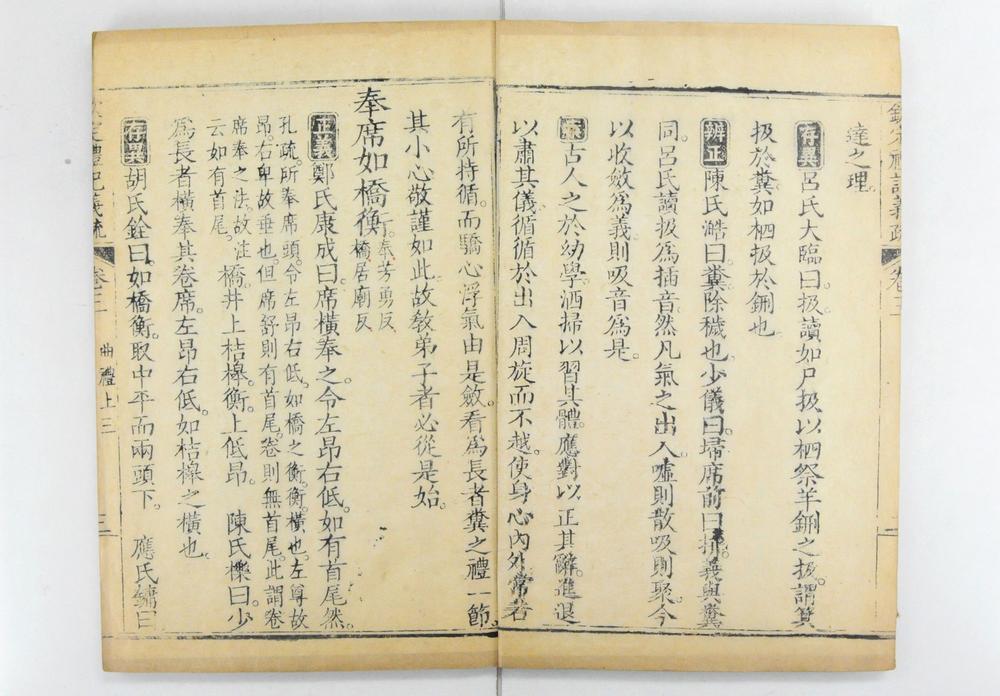 達之理。
存異 呂氏大臨曰。扱。讀如尸扱以柶祭羊鉶之扱。謂箕
扱於糞。如柶扱於鉶也
辨正 陳氏澔曰。糞除穢也。少儀曰。埽席前曰拚。義與糞
同。呂氏讀扱爲插音。然凡氣之出入。噓則散。吸則聚。今
以收斂爲義。則吸音爲是。
案 古人之於幼學。洒掃以習其體。應對以正其辭。進退
以肅其儀。循循於出入周旋而不越。使身心內外常若
有所持循。而驕心浮氣由是斂。看爲長者糞之禮一節。
其小心敬謹如此。故敎弟子者必從是始。
奉席如橋衡。奉芳勇反
橋居廟反
正義 鄭氏康成曰。席橫奉之。令左昂右低。如有首尾然。
孔疏。所奉席頭。令左昂右低。如橋之衡。衡橫也。左尊故
昂。右卑故垂也。但席舒則有首尾。卷則無首尾。此謂卷
席奉之法。故注
云如有首尾。
橋。井上桔槔。衡。上低昂。 陳氏櫟曰。少
爲長者橫奉其卷席。左昂右低。如桔槔之橫也。
存異 胡氏銓曰。如橋衡。取中平而兩頭下。 應氏鏞曰
卷三
曲禮上三
三